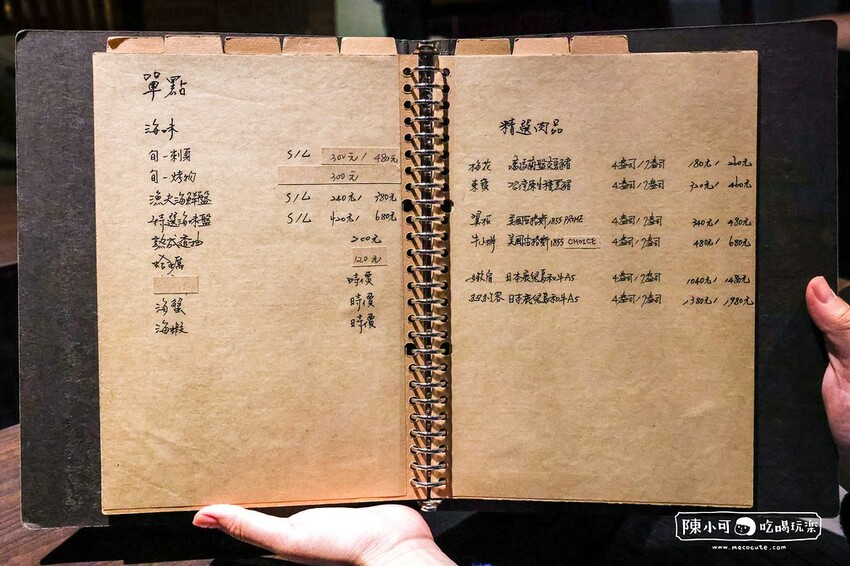 單點
海味
旬-刺身 S/L 300元/ 480元
旬-烤物 300元
漁夫海鮮盤 S/L 240元/ 380元
特選海味盤 S/L 420元/ 680元
200元
120元
時價
海蟹 時價
海蝦 時價
精選肉品
梅花 4盎司/7盎司 180元/ 260元
4盎司/7盎司 320元/ 460元
翼板 美國安格斯1855 PRIME 4盎司/7盎司 340元/ 480元
牛小排 美國安格斯1855 CHOICE 4盎司/7盎司 480元/ 680元
日本鹿兒島和牛A5 4盎司/7盎司 1040元/ 1480元
日本鹿兒島和牛A5 4盎司/7盎司 1380元/ 1980元
陳小可 吃喝玩樂
www.mecocute.com